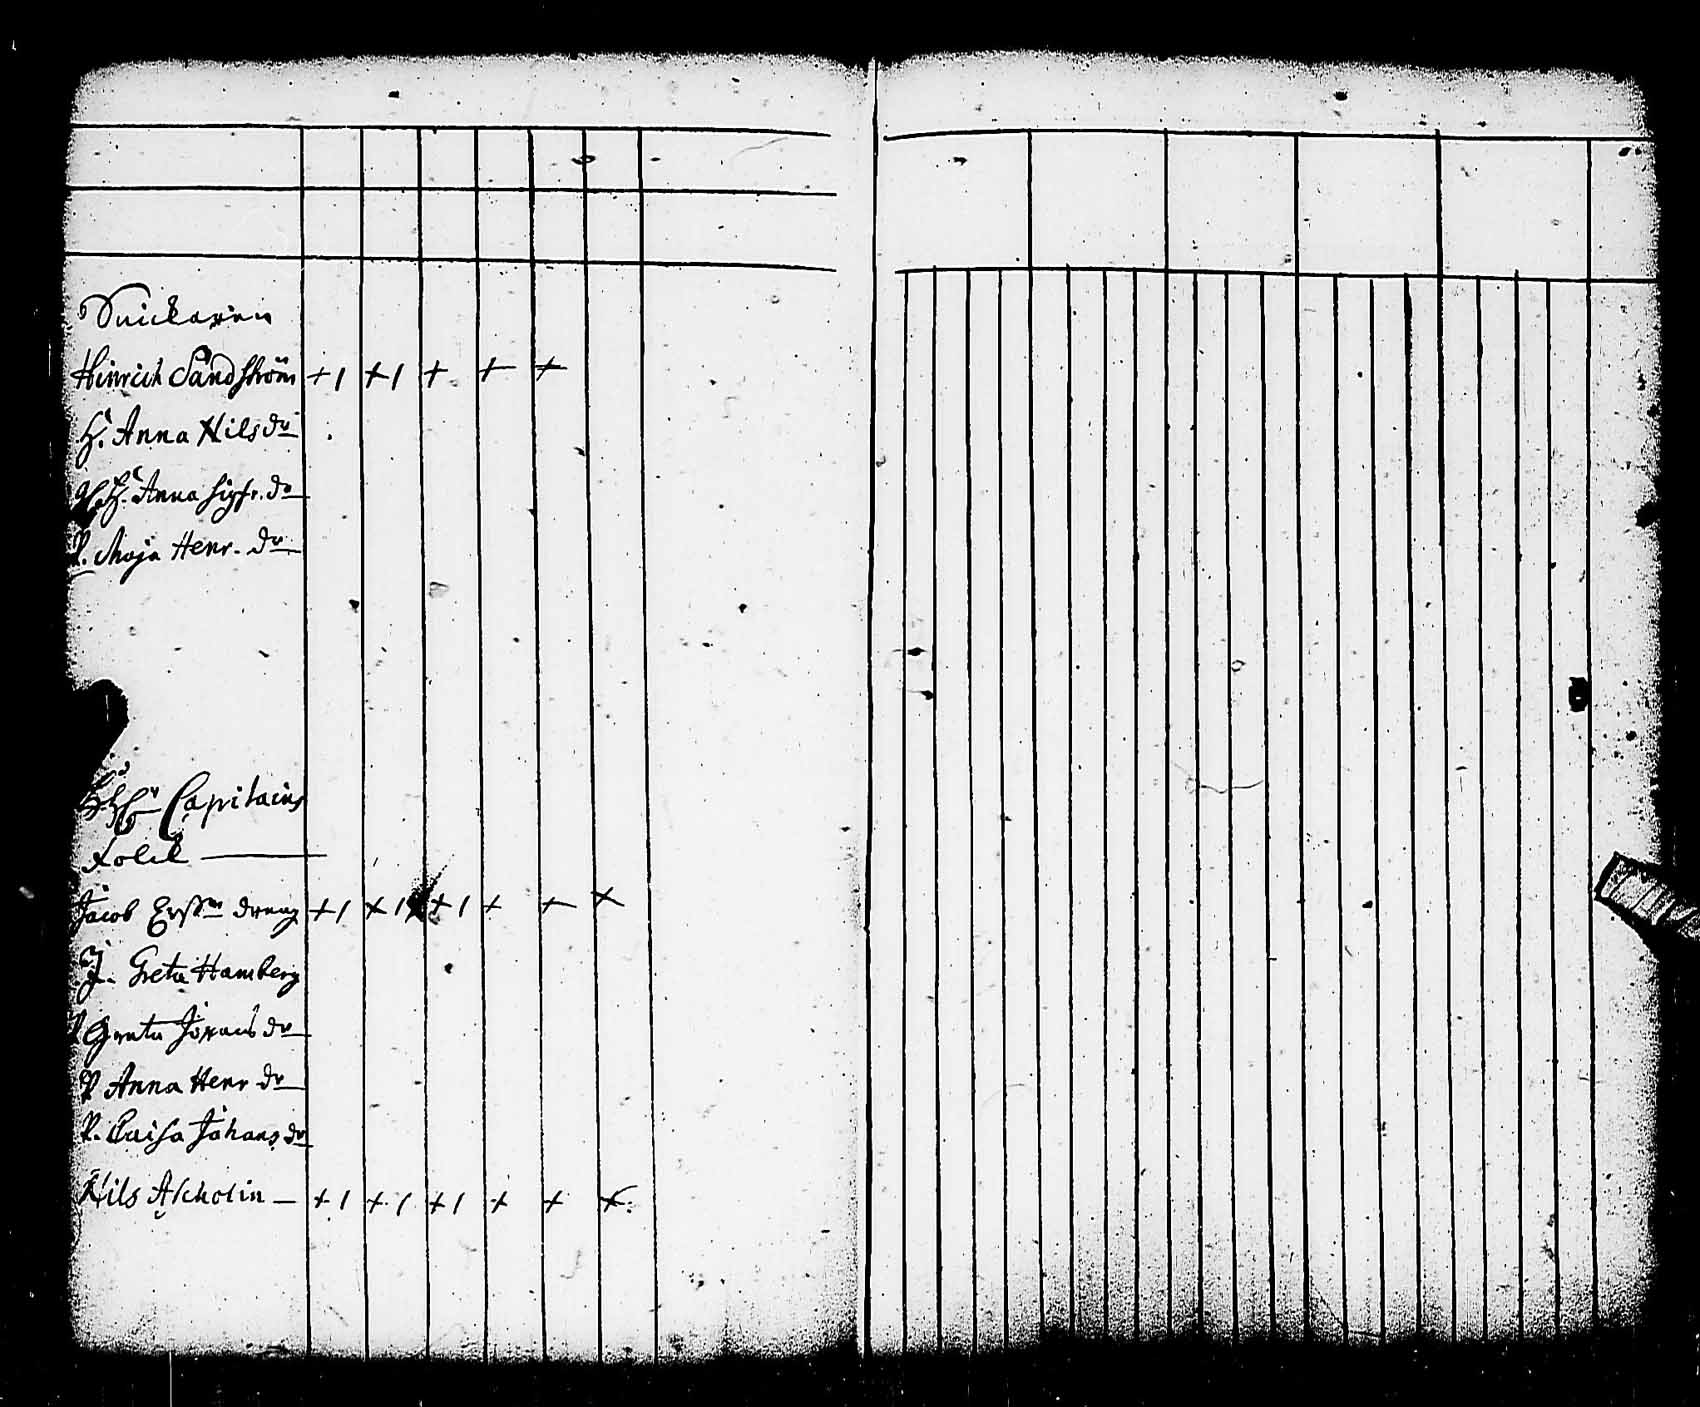 Snickaren
Hinrich Sandström +1 +1 + + +
H. Anna Nilsdr
H. Anna Sigfr. dr
P. Maja Henr. dr
Capitains
Folck
Jacob Erssn dreng +1 +1 +1 + + +
J. Greta Hamberg
Greta Jörans dr
P Anna Henr dr
P. Caisa Johans dr
Nils Alcholin +1 +1 +1 + + +